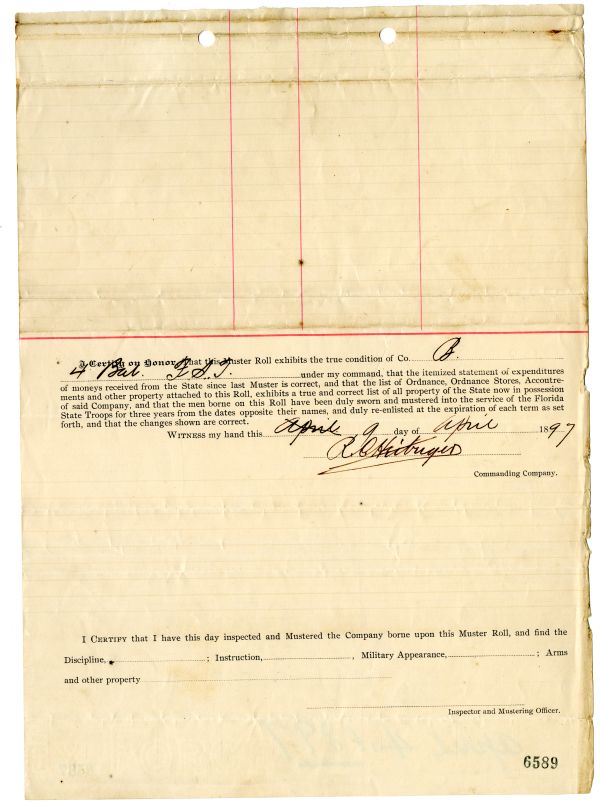 I Certify on Honor, that this Muster Roll exhibits the true condition of Co. B.
4 Bat. F. S. T. under my command, that the itemized statement of expenditures
of moneys received from the State since last Muster is correct, and that the list of Ordnance, Ordnance Stores, Accoutre-
ments and other property attached to this Roll, exhibits a true and correct list of all property of the State now in possession
of said Company, and that the men borne on this Roll have been duly sworn and mustered into the service of the Florida
State Troops for three years from the dates opposite their names, and duly re-enlisted at the expiration of each term as set
forth, and that the changes shown are correct.
WITNESS my hand this April 9 day of April 1897
R. C.
Commanding Company.
I CERTIFY that I have this day inspected and Mustered the Company borne upon this Muster Roll, and find the
Discipline, ; Instruction, , Military Appearance, ; Arms
and other property
Inspector and Mustering Officer.
6589